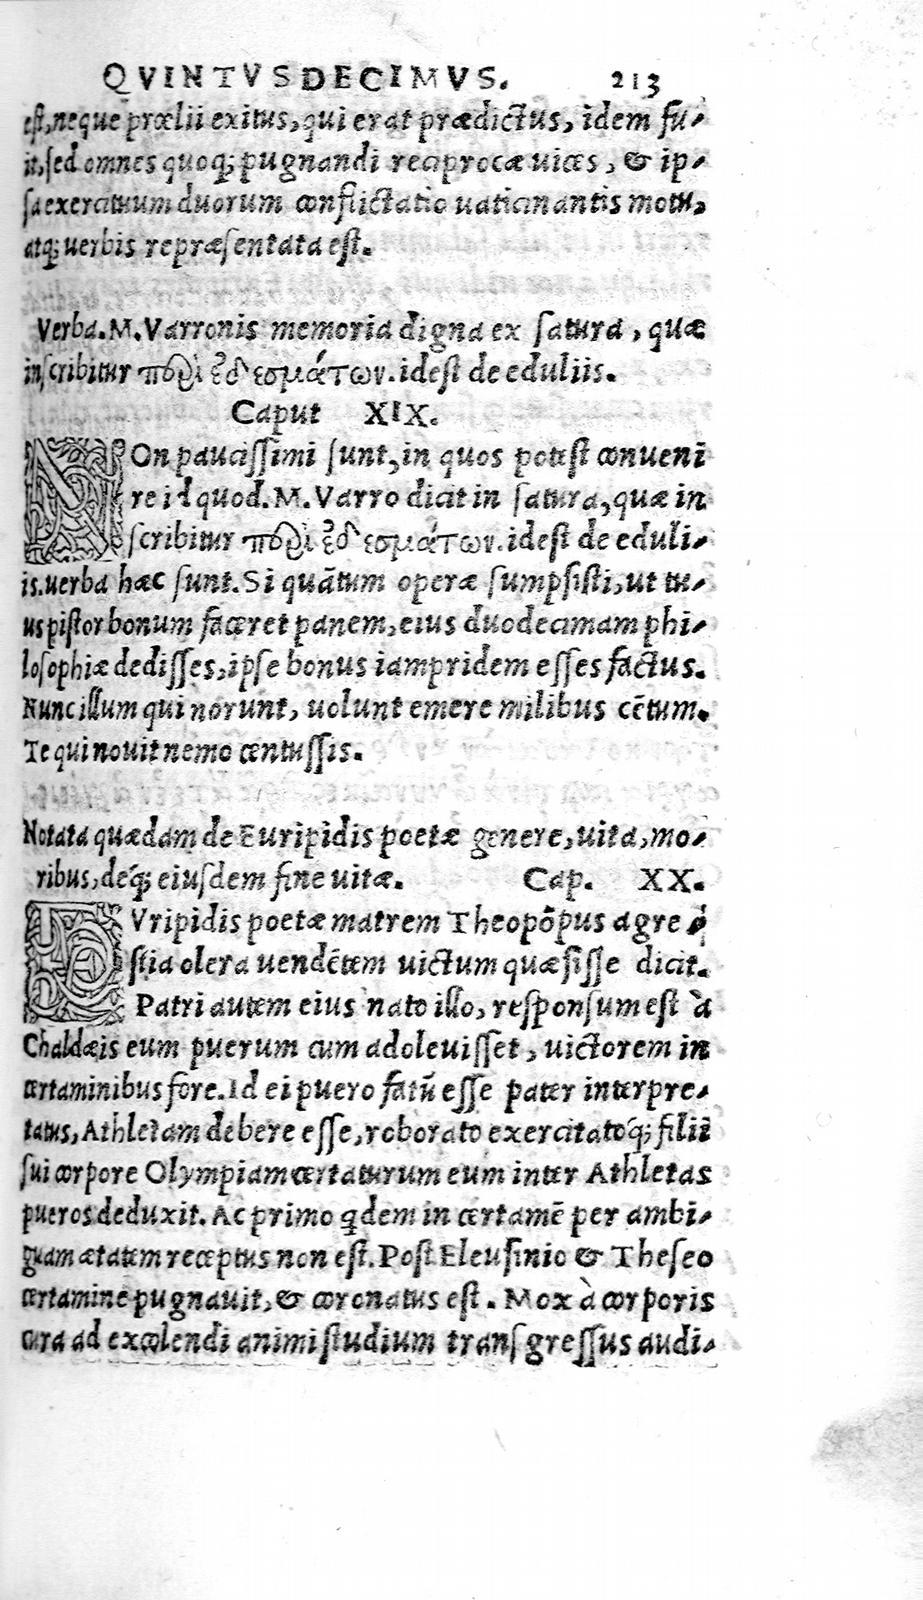 QVINTVSDECIMVS. 213
est, neque prœlii exitus, qui erat prædictus, idem fu-
it, sed omnes quoq; pugnandi reciprocæ uices, & ip-
sa exercituum duorum conflictatio uaticinantis motu,
atq; uerbis repræsentata est.
Verba. M. Varronis memoria digna ex satura, quæ
inscribitur περὶ ἐδεσμάτων. idest de eduliis.
Caput XIX.
NOn paucissimi sunt, in quos potest conueni
re id quod. M. Varro dicit in satura, quæ in
scribitur περὶ ἐδεσμάτων. idest de eduli-
is. uerba hæc sunt. Si quãtum operæ sumpsisti, ut tu-
us pistor bonum faceret panem, eius duodecimam phi-
losophiæ dedisses, ipse bonus iampridem esses factus.
Nunc illum qui norunt, uolunt emere milibus cẽtum.
Te qui nouit nemo centussis.
Notata quædam de Euripidis poetæ genere, uita, mo-
ribus, deq́; eiusdem fine uitæ. Cap. XX.
EVripidis poetæ matrem Theopõpus agre
stia olera uendẽtem uictum quæsisse dicit.
Patri autem eius nato illo, responsum est à
Chaldæis eum puerum cum adoleuisset, uictorem in
certaminibus fore. Id ei puero fatũ esse pater interpre-
tatus, Athletam debere esse, roborato exercitatoq́; filii
sui corpore Olympiam certaturum eum inter Athletas
pueros deduxit. Ac primo q̃dem in certamẽ per ambi-
guam ætatem receptus non est. Post Eleusinio & Theseo
certamine pugnauit, & coronatus est. Mox à corporis
cura ad excolendi animi studium transgressus audi-